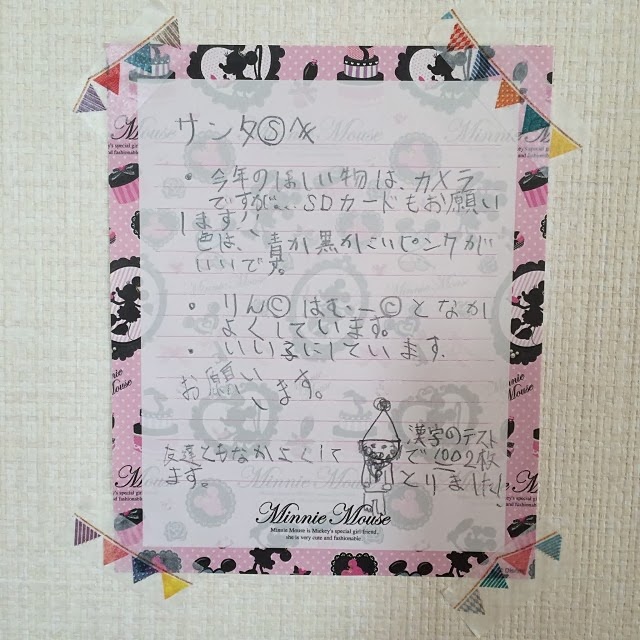 サンタⓈへ
・今年のほしい物は、カメラ
ですが、、SDカードもお願い
します!!
色は、青か黒かこいピンクが
いいです。
・りんⒸはむーⒸとなかよ
よくしています。
・いい子にしています.
お願い
します。
友達ともなかよくして
ます。
漢字のテスト
で100 2枚
とりました!
Minnie Mouse
Minnie Mouse is Mickey's special girl friend,
she is very cute and fashionable.